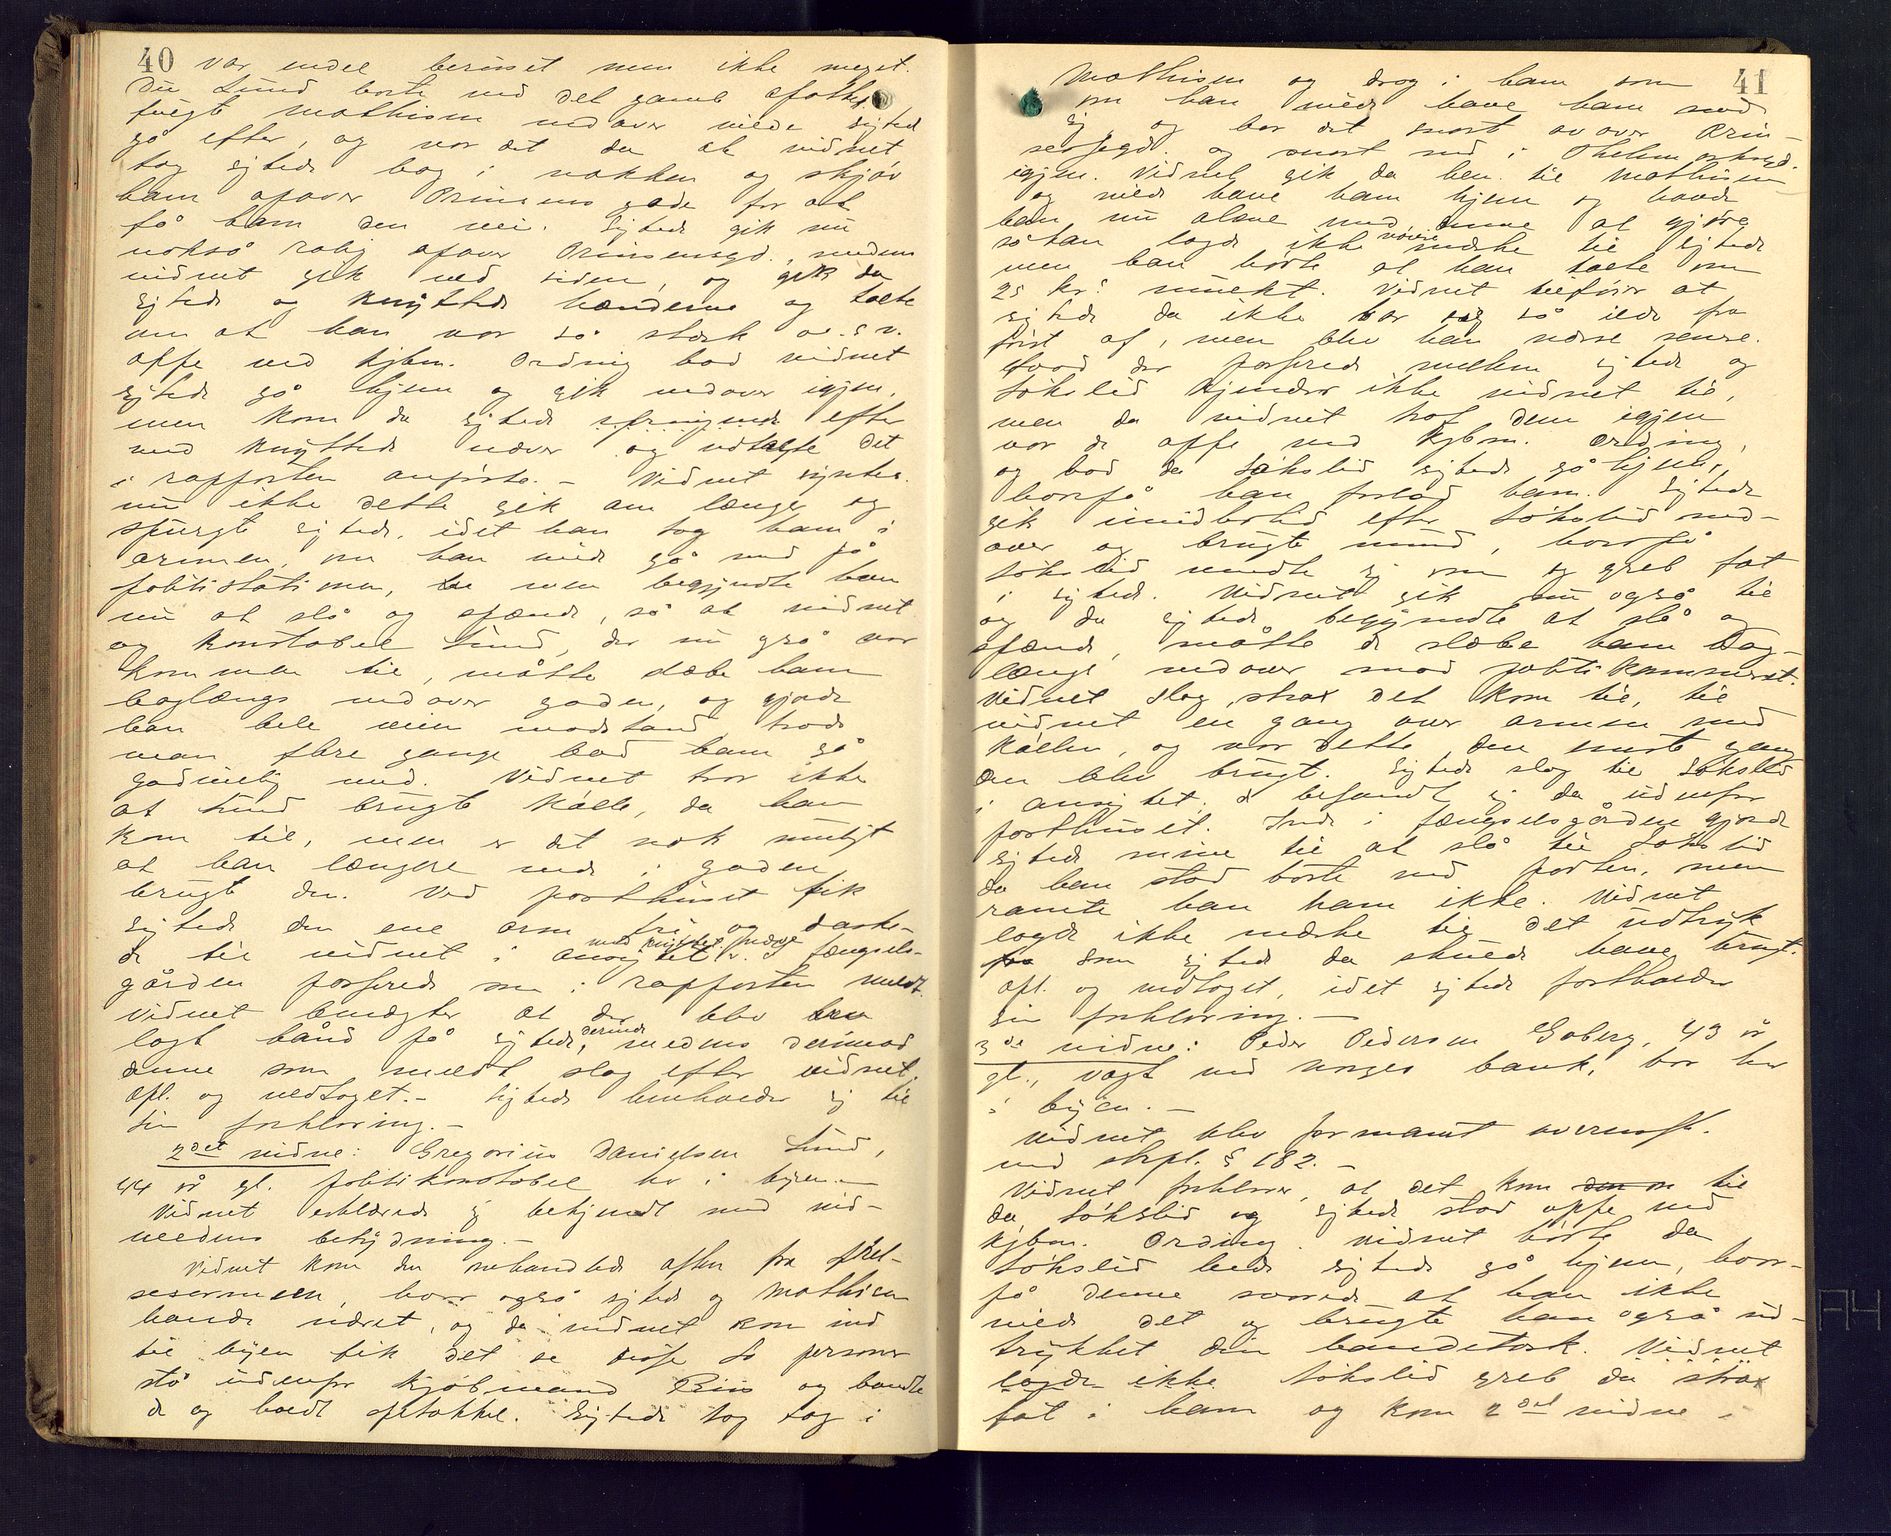 40
var endel beruset men ikke meget.
Du Lund borte ved det gamle apothek
fulgte Mathisen nedover vilde sigtede
gå efter, og var det da at vidnet
tog sigtede bag i nakken og skjøv
ham opover Prinsens gade for at
få ham den vei. Sigtede gik nu
nokså rolig opover Prinsensgd., medens
vidnet gik ved siden, og gik da
sigtede og knyttede hænderne og talte
om at han var så stærk o. s. v.
Oppe ved kjbm. Ording bad vidnet
sigtede gå hjem og gik nedover igjen,
men kom da sigtede springende efter
med knyttede næver og udtalte det
i rapporten anførte. – Vidnet syntes
nu ikke dette gik an længer og
spurgte sigtede, idet han tog ham i
armen, om han vilde gå med på
politistationen, men begyndte han
nu at slå og spænde, så at vidnet
og konstabel Lund, der nu også var
kommen til, måtte slæbe ham
baglængs nedover gaden, og gjorde
han hele veien modstand trods
man flere gange bad ham gå
godvillig med. Vidnet tror ikke
at Lund brugte kølle, da han
kom til, men er det nok muligt
at han længere nede i gaden
brugte den. Ved posthuset fik
sigtede den ene arm fri og daske-
de til vidnet i ansigtet med knyttet næve. I fængsels-
gården passerede som i rapporten meldt.
Vidnet benægter at der blev
lagt hånd på sigtede derinde, medens derimod
denne som meldt slog efter vidnet.
Opl. og vedtaget. – Sigtede henholder sig til
sin forklaring. –
2det vidne: Gregorius Danielsen Lund,
44 år gl. politikonstabel her i byen. –
Vidnet erklærede sig bekjendt med vid-
needens betydning. –
Vidnet kom den omhandlede aften fra Frel-
sesarmeen, hvor også sigtede og Mathisen
havde været, og da vidnet kom ind
til byen fik det se disse to personer
stå udenfor kjøbmand Riis og bandte
de og holdt spetakkel. Sigtede tog tag i
41
Mathisen og drog i ham som
om han vilde have ham med
sig og bar det snart av over Prin-
sensgd. og snart ned i Thelemarksgd.
igjen. Vidnet gik da hen til Mathisen
og vilde have ham hjem og havde
han nu alene med denne at gjøre
såtan lagde ikke nøiere mærke til sigtede
men han hørte at han talte om
25 kr.s mulkt. Vidnet tilføier at
sigtede da ikke bar sig så ilde fra
først af, men blev han værre senere.
Hvad der passerede mellem sigtede og
Løkslid kjender ikke vidnet til,
men da vidnet traf dem igjen
var de oppe ved kjbm. Ording,
og bad da Løkslid sigtede gå hjem,
hvorpå han forlod ham. Sigtede
gik imidlertid efter Løkslid ned-
over og brugte mund, hvorpå
Løkslid vendte sig om og greb fat
i sigtede. Vidnet gik nu også til
og da sigtede begyndte at slå og
spænde, måtte de slæbe ham bag-
længs nedover mod politikammeret.
Vidnet slog, strax det kom til, til
vidnet en gang over armen med
køllen, og var dette den eneste gang
den blev brugt. Sigtede slog til Løkslid
i ansigtet, de befandt sig da udenfor
posthuset. Inde i fængselsgården gjorde
sigtede mine til at slå til Løkslid
da han stod borte ved porten, men
ramte han ham ikke. Vidnet
lagde ikke mærke til det udtryk
som sigtede da skulde have brugt.
Opl. og vedtaget, idet sigtede fastholder
sin forklaring. –
3de vidne: Peder Pedersen Goberg, 43 år
gl., vagt ved Norges bank, bor her
i byen. –
Vidnet blev formanet overensst.
med strpl. § 182. –
Vidnet forklarer, at det kom til
da Løkslid og sigtede stod oppe ved
kjbm. Ording. Vidnet hørte da
Løkslid bede sigtede gå hjem, hvor-
på denne svarede at han ikke
vilde det og brugte han også ud-
trykket din bandetask. Vidnet
lagde ikke Løkslid greb da strax
fat i ham og kom 2det vidne